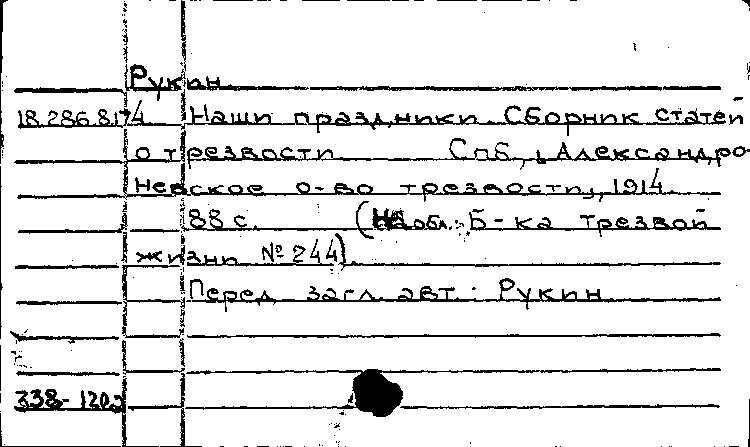 Рукин.
18.286.8.174 Наши праздники. Сборник статей
о трезвости. Спб., Александро-
Невское о-во трезвости, 1914.
88 с. (На обл.: Б-ка трезвой
жизни № 244).
Перед загл. авт.: Рукин